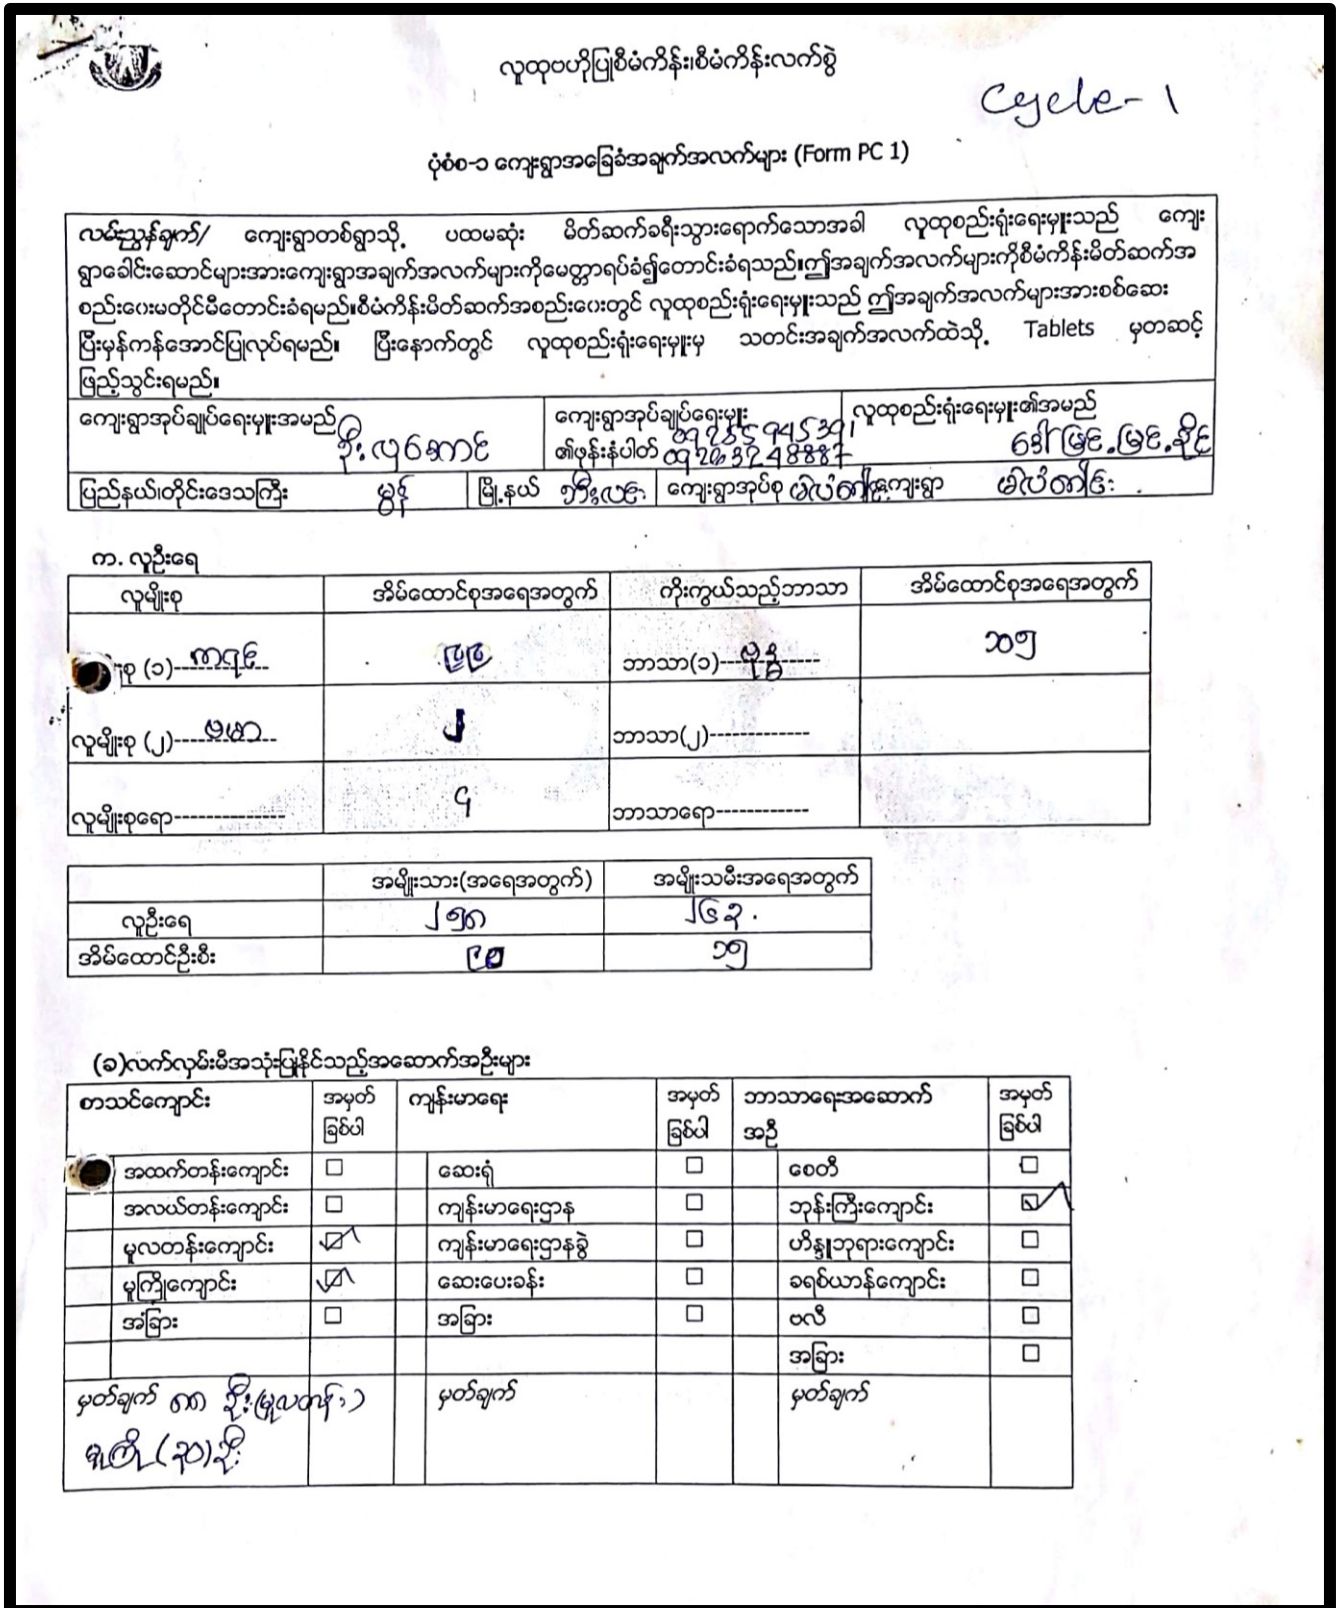 လူထုဗဟိုပြုစီမံကိန်း၊စီမံကိန်းလက်စွဲ
Cycle-1
ပုံစံစ-၁ ကျေးရွာအခြေခံအချက်အလက်များ (Form PC 1)
လမ်းညွှန်ချက်/ ကျေးရွာတစ်ရွာသို့ ပထမဆုံး မိတ်ဆက်ခရီးသွားရောက်သောအခါ လူထုစည်းရုံးရေးမှူးသည် ကျေး
ရွာခေါင်းဆောင်များအားကျေးရွာအချက်အလက်များကိုမေတ္တာရပ်ခံ၍တောင်းခံရသည်။ဤအချက်အလက်များကိုစီမံကိန်းမိတ်ဆက်အ
စည်းဝေးမတိုင်မီတောင်းခံရမည်။စီမံကိန်းမိတ်ဆက်အစည်းဝေးတွင် လူထုစည်းရုံးရေးမှူးသည် ဤအချက်အလက်များအားစစ်ဆေး
ပြီးမှန်ကန်အောင်ပြုလုပ်ရမည်။ ပြီးနောက်တွင် လူထုစည်းရုံးရေးမှူးမှ သတင်းအချက်အလက်ထဲသို့ Tablets မှတဆင့်
ဖြည့်သွင်းရမည်။
ကျေးရွာအုပ်ချုပ်ရေးမှူးအမည် ဦးလှအောင် ကျေးရွာအုပ်ချုပ်ရေးမှူး လူထုစည်းရုံးရေးမှူး၏အမည်
၏ဖုန်းနံပါတ် ဒေါ်မြင့်မြင့်ခိုင်
ပြည်နယ်၊တိုင်းဒေသကြီး မွန် မြို့နယ် ဘီးလင်း ကျေးရွာအုပ်စု ကျေးရွာ
က. လူဦးရေ
လူမျိုးစု အိမ်ထောင်စုအရေအတွက် ကိုးကွယ်သည့်ဘာသာ အိမ်ထောင်စုအရေအတွက်
းစု (၁)---ကရင်--- ၉၉ ဘာသာ(၁)---ဗုဒ္ဓ--- ၁၀၅
လူမျိုးစု (၂)---ဗမာ--- ၂ ဘာသာ(၂)-------------
လူမျိုးစုရော--------------- ၄ ဘာသာရော-------------
အမျိုးသား(အရေအတွက်) အမျိုးသမီးအရေအတွက်
လူဦးရေ ၂၅၈ ၂၆၃.
အိမ်ထောင်ဦးစီး ၉၀ ၁၅
(ခ)လက်လှမ်းမီအသုံးပြုနိုင်သည့်အဆောက်အဦးများ
စာသင်ကျောင်း အမှတ် ကျန်းမာရေး အမှတ် ဘာသာရေးအဆောက် အမှတ်
ခြစ်ပါ ခြစ်ပါ အဦ ခြစ်ပါ
အထက်တန်းကျောင်း ☐ ဆေးရုံ ☐ စေတီ ☐
အလယ်တန်းကျောင်း ☐ ကျန်းမာရေးဌာန ☐ ဘုန်းကြီးကျောင်း ☑
မူလတန်းကျောင်း ☑ ကျန်းမာရေးဌာနခွဲ ☐ ဟိန္ဒူဘုရားကျောင်း ☐
မူကြိုကျောင်း ☑ ဆေးပေးခန်း ☐ ခရစ်ယာန်ကျောင်း ☐
အခြား ☐ အခြား ☐ ဗလီ ☐
အခြား ☐
မှတ်ချက် ၈၈ ဦး(မူလတန်း) မှတ်ချက် မှတ်ချက်
မူကြို (၃၀)ဦး